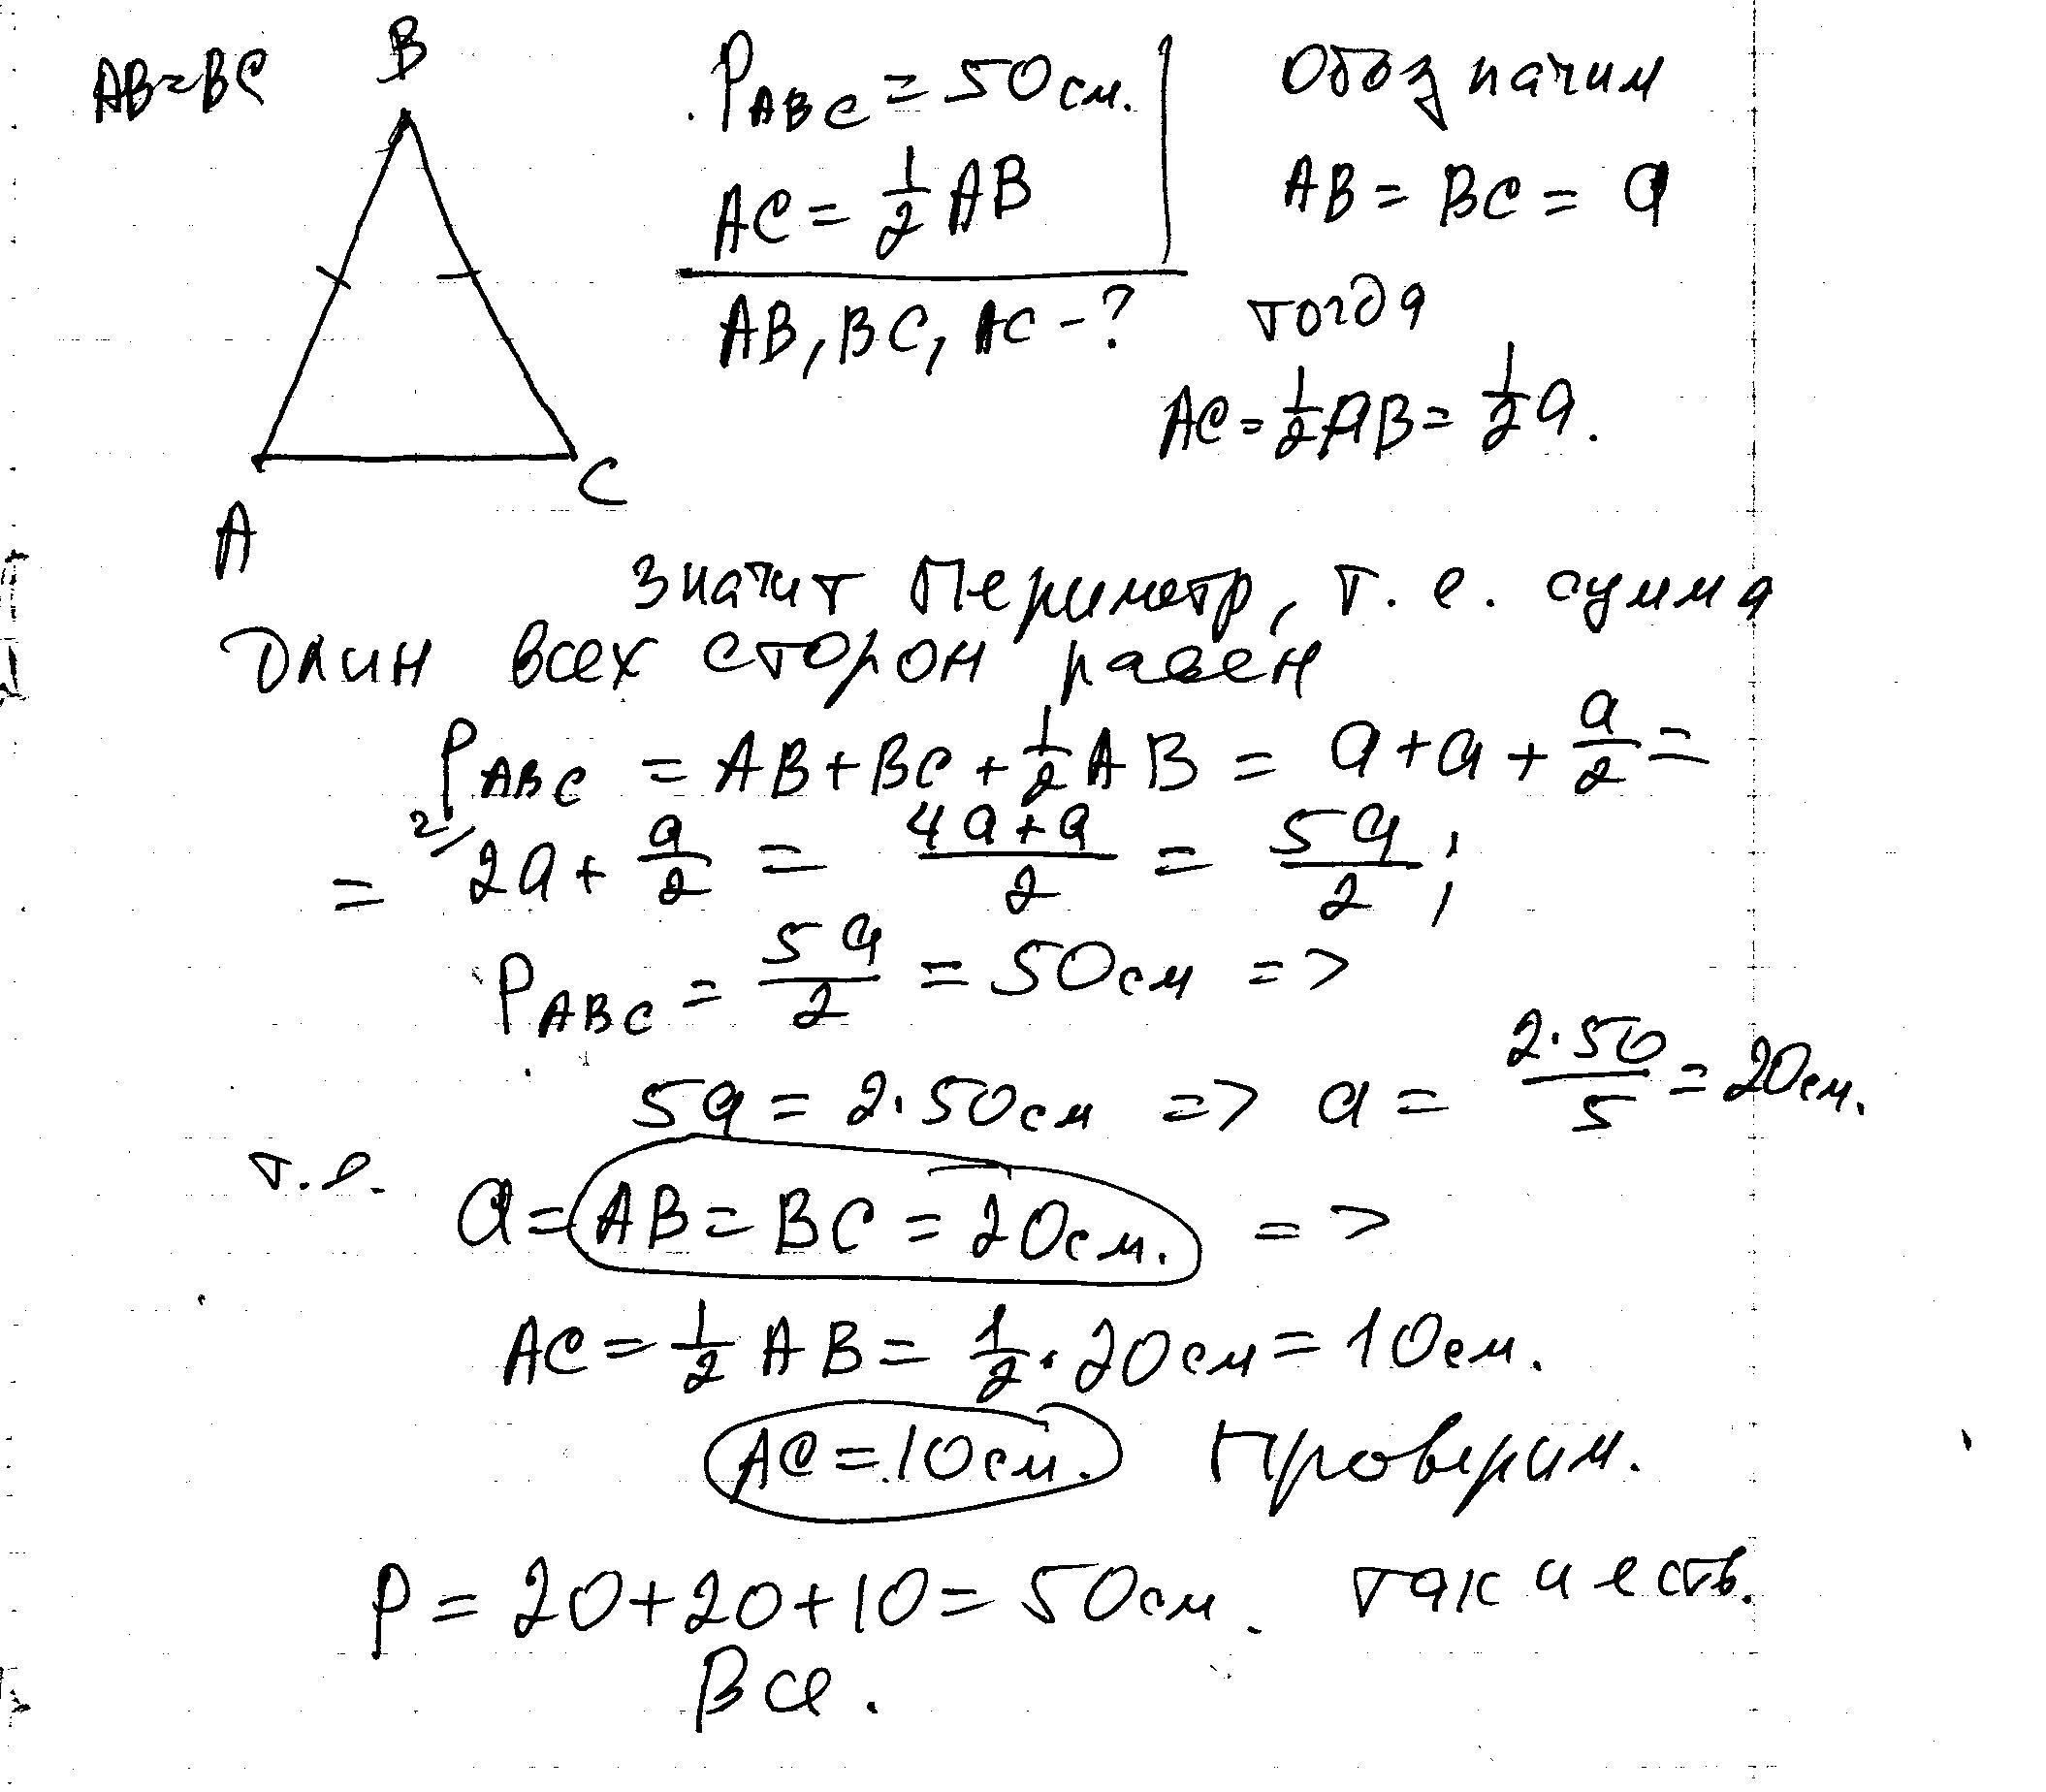 AB=BC
B
A
C
P_ABC = 50см.
AC = 1/2 AB
AB, BC, AC - ?
Обозначим
AB = BC = a
тогда
AC = 1/2 AB = 1/2 a.
значит Периметр, т. е. сумма
длин всех сторон равен
P_ABC = AB + BC + 1/2 AB = a + a + a/2 =
= 2/ 2a + a/2 = (4a + a)/2 = 5a/2 ;
P_ABC = 5a/2 = 50см =>
5a = 2·50см => a = (2·50)/5 = 20см.
т.е. a = AB = BC = 20см. =>
AC = 1/2 AB = 1/2 · 20см = 10см.
AC = 10см. Проверим.
P = 20 + 20 + 10 = 50см. так и есть.
Все.